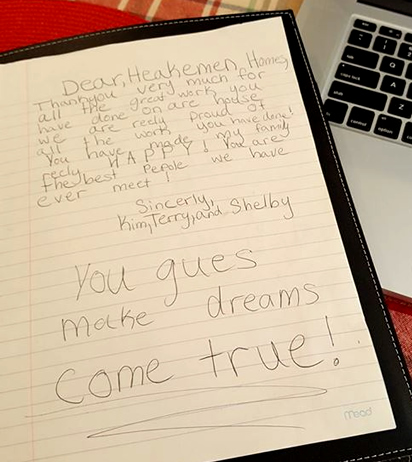 Dear, Heakemen, Homes,
Thankyou very much for
all the great work you
have done on are house
we are reely proud of
all the work you have done!
You have made my family
reely HAPPY! You are
the best Pepole we have
ever meet!
Sincerly,
Kim, Terry, and Shelby
You gues
make dreams
come true!
mead
caps lock
shift
fn
control
option
command